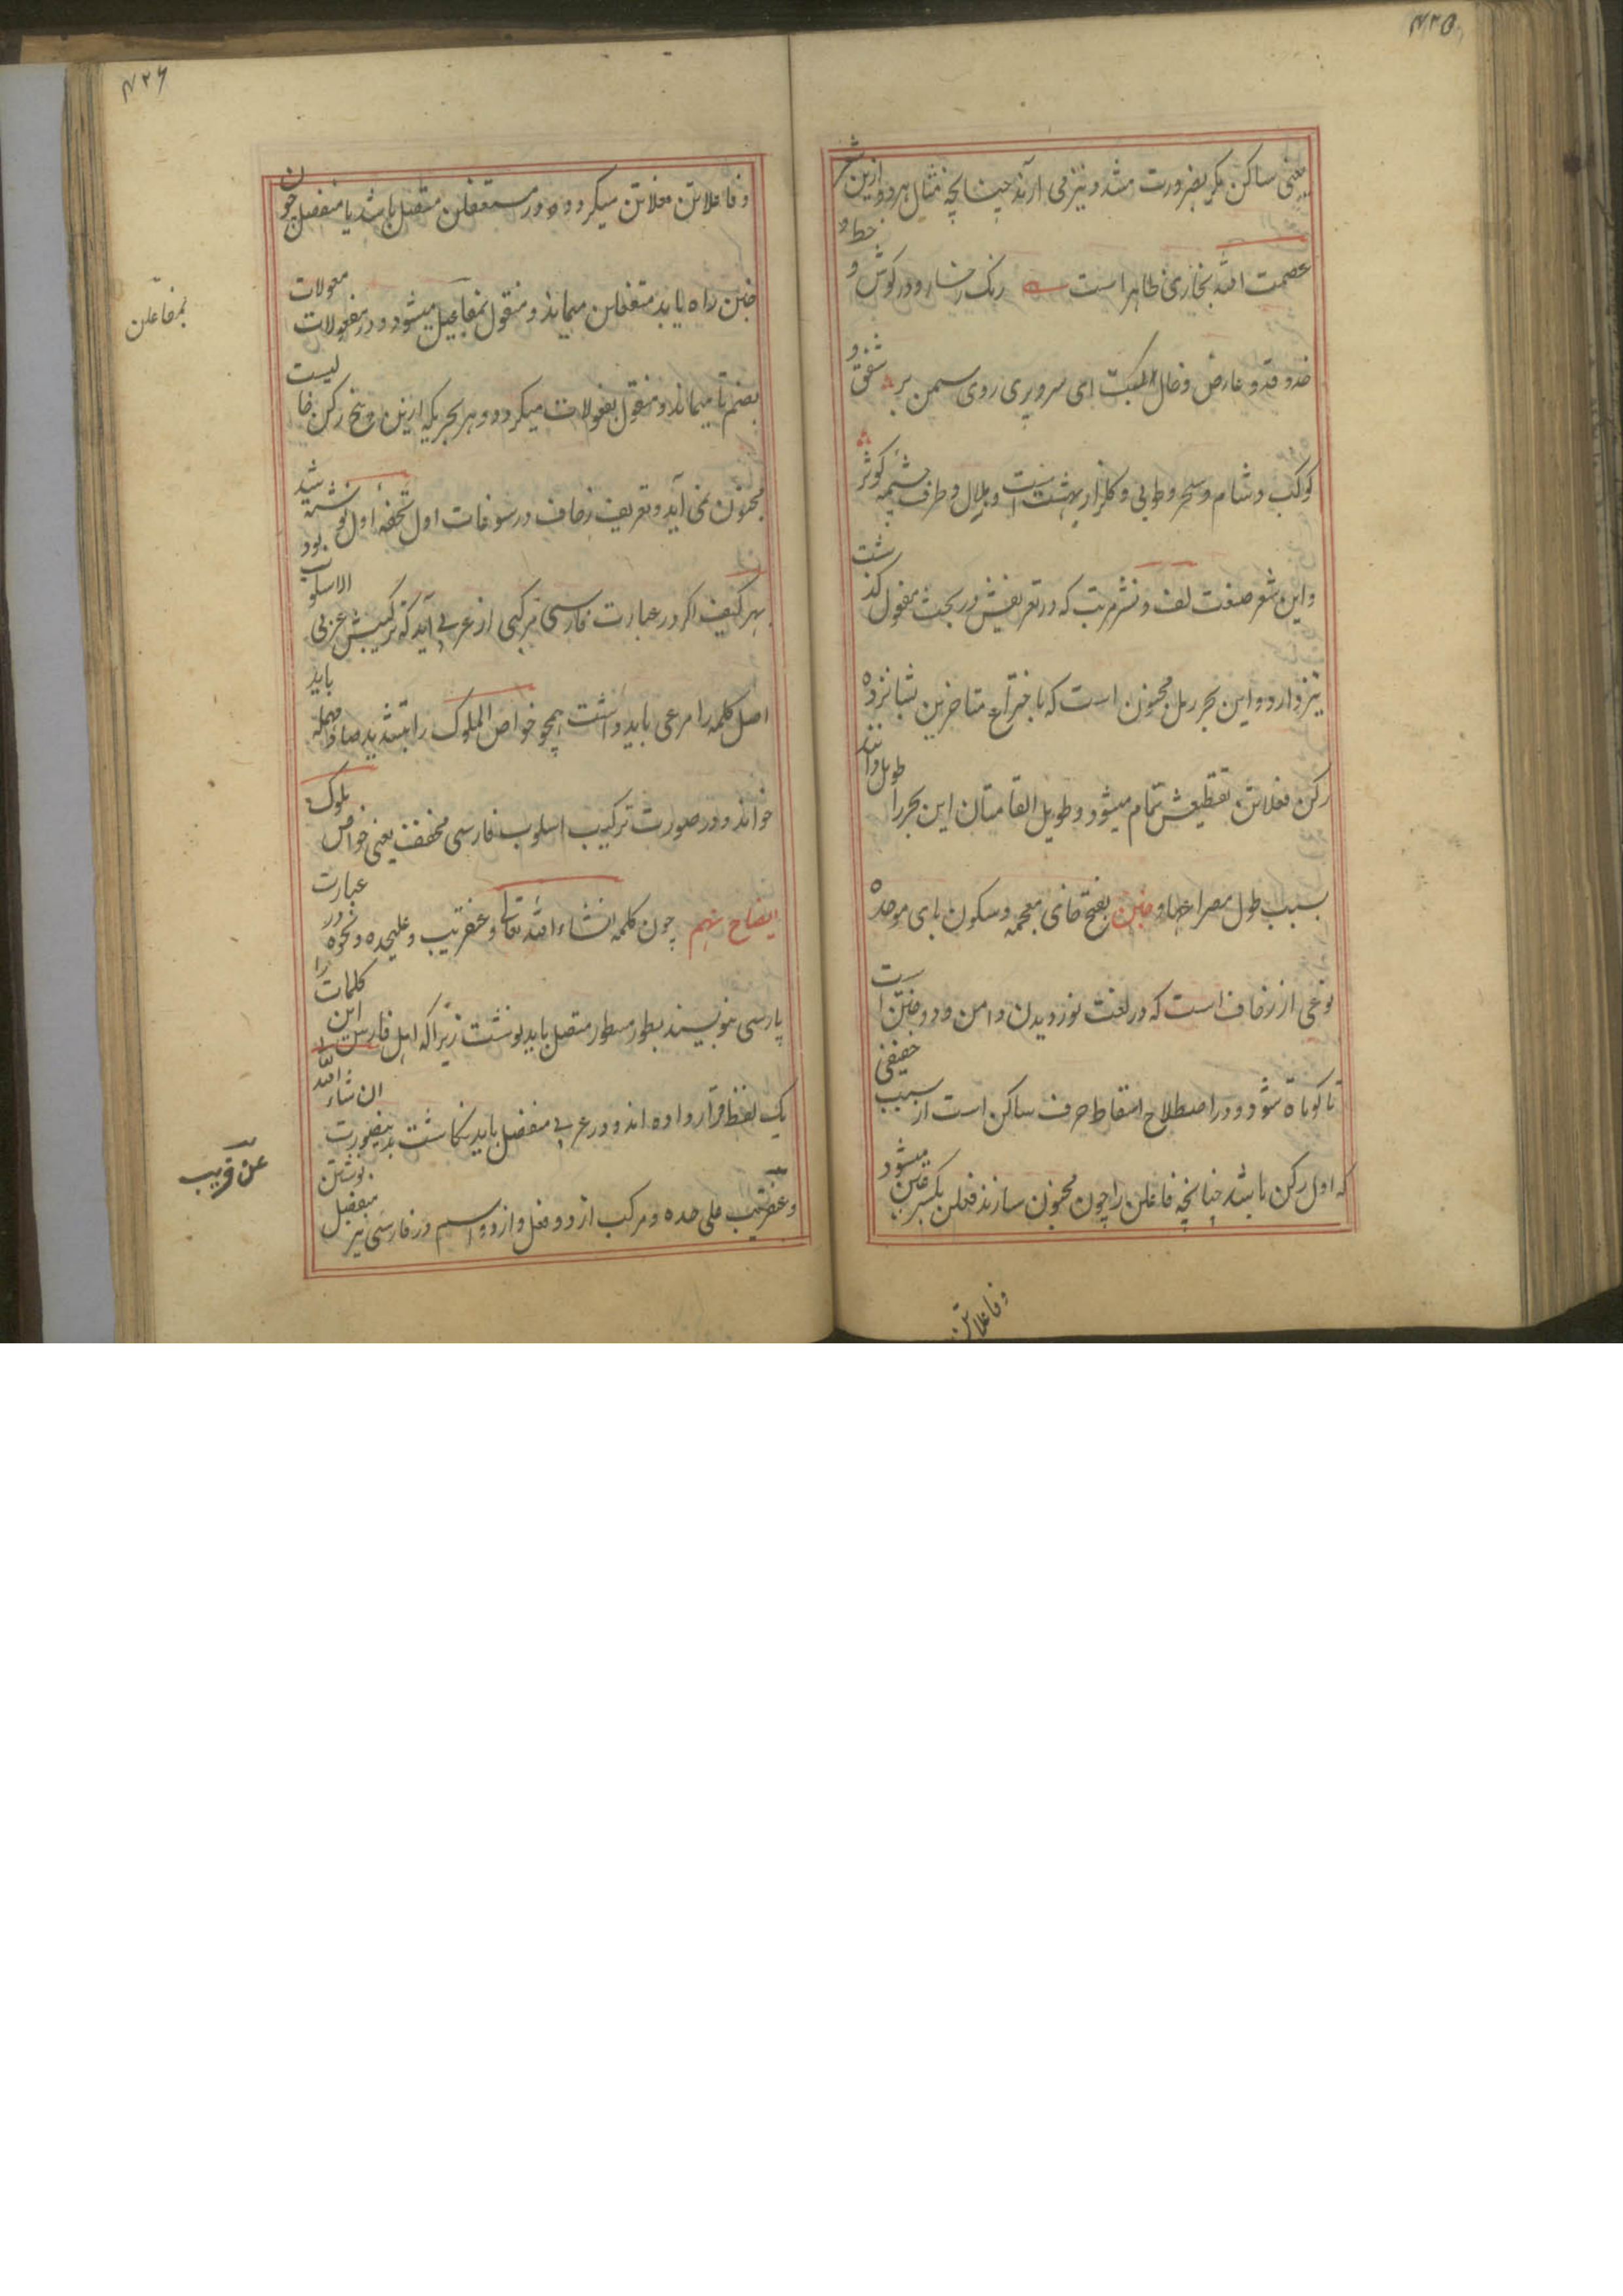 ۴۲۵
یعنی ساکن بکر بضرورت مشدد نیز می آرند چنانچه مثال هر دو ازین شعر
عصمت الله بخاری ظاهر است رنک رخسار و در کوش و خط و
خد و قد و عارض و خال لبت ای سرو پری روی سمن بر شفق و
کوکب و شام و سحر و طوبی و کلزار بهشت است و بلال و طرف چشمه کوثر
و این شعر صنعت لف و نشر مرتب که در تعریفش در بحث مفعول کذشت
نیز دارد و این بحر رمل مخبون است که باختراع متاخرین بشانزده
رکن فعلاتن تقطیعش تمام میشود و طویل القامتان این بحر را طویل دانند
بسبب طول مصراعها و خبن بفتح خای معجمه و سکون بای موحده
نوعی از زحاف است که در لغت نوردیدن دامن و دوختن است
تا کوتاه شود و در اصطلاح اسقاط حرف ساکن است از سبب خفیفی
که اول رکن باشد چنانچه فاعلن را چون مخبون سازند فعلن بکسر عین میشود
و فاعلاتن
۴۲۶
و فاعلاتن فعلاتن میکردد و در مستفعلن متصل باشد یا منفصل چون
خبن راه یابد متفعلن میماند و منقول بمفاعیل میشود و در مفعولات معولات
بمفاعلن
بضم تا میماند و منقول بفعولات میکردد و هر بحریکه ازین پنج رکن خالیست
مخبون نمی آید و تعریف زحاف در سوغات اول تحفه اول نوشته شد
بهر کیف اکر در عبارت فارسی ترکیبی از عربی آید که ترکیبش عربی الاسلوب بود
اصل کلمه را مرعی باید داشت همچو خواص الملوک را بتشدید صاد مهمله باید
خواند و در صورت ترکیب اسلوب فارسی مخفف یعنی خواص ملوک
ایضاح نهم چون کلمه انشاء الله تعالی و عنقریب و علیحده و نحوه در عبارت
پارسی بنویسند بطور مسطور متصل باید نوشت زیراکه اهل فارس این کلمات را
یک لفظ قرار داده اند و در عربی منفصل باید نکاشت بدینصورت ان شاء الله
و عنقریب علی حده و مرکب از دو فعل و از دو اسم در فارسی نیز منفصل نوشتن
عن قریب